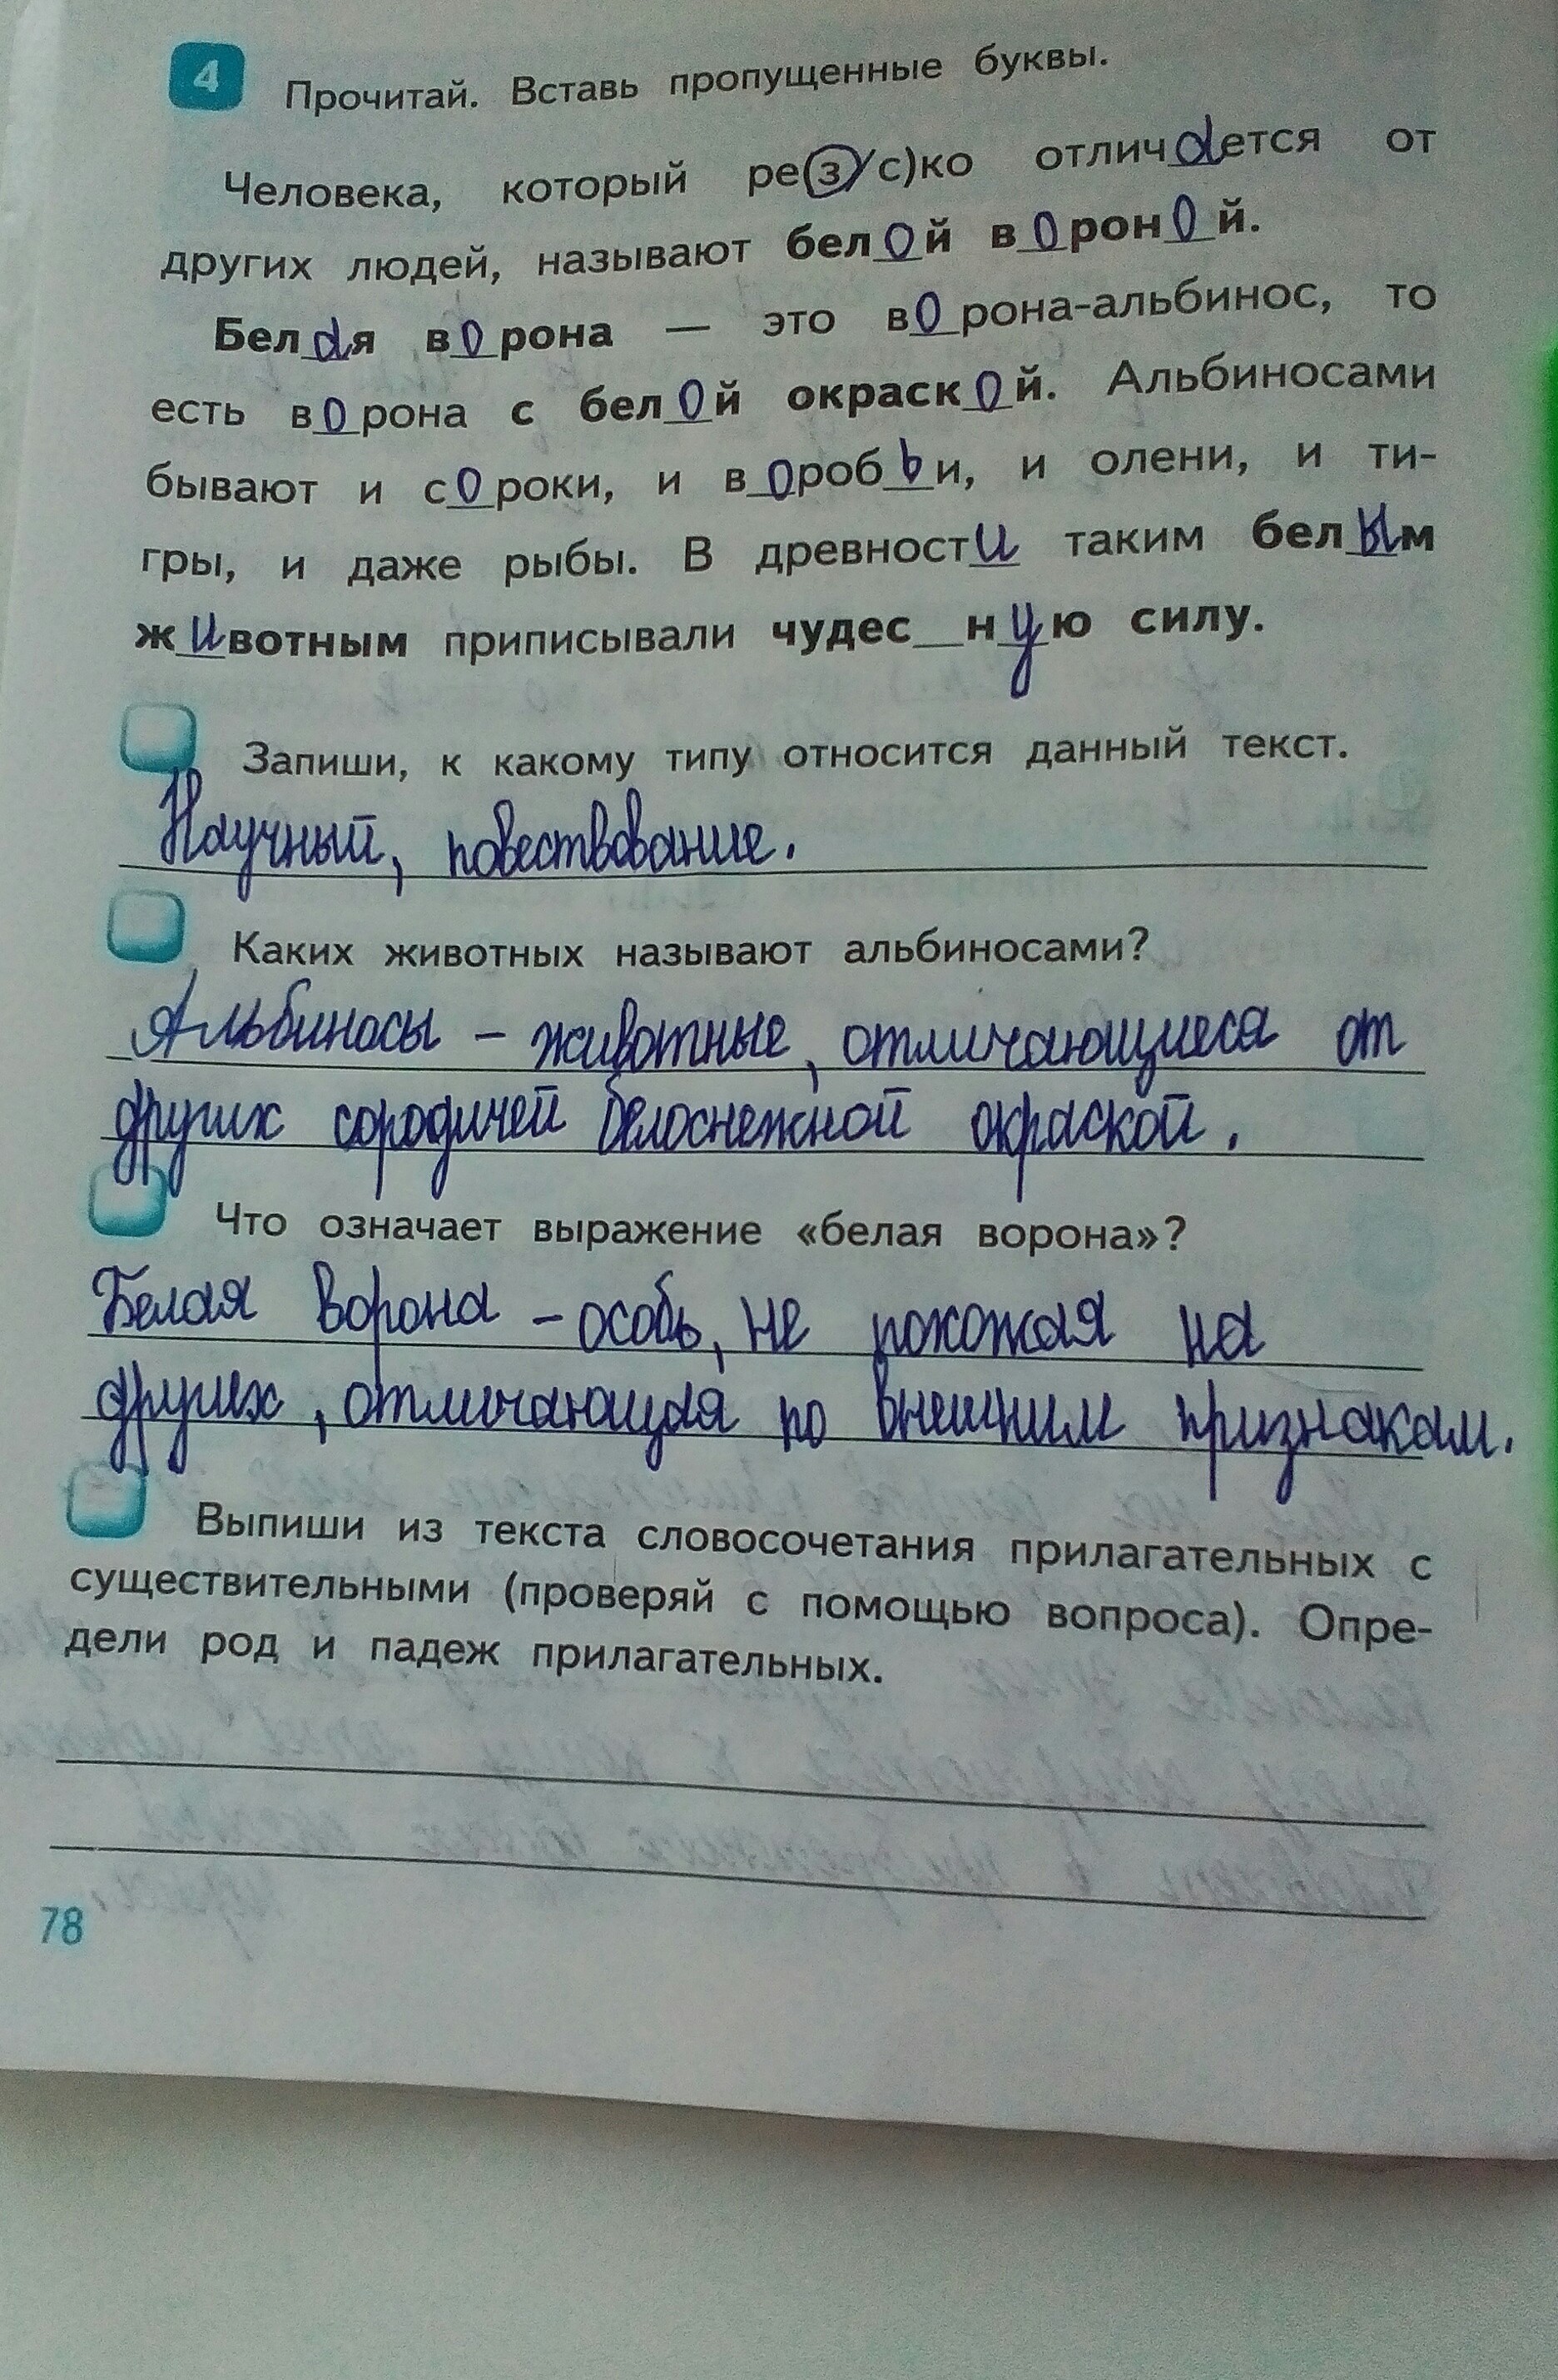 4 Прочитай. Вставь пропущенные буквы.
Человека, который ре(з/с)ко отличается от
других людей, называют белой вороной.
Белая ворона — это ворона-альбинос, то
есть ворона с белой окраской. Альбиносами
бывают и сороки, и воробьи, и олени, и ти-
гры, и даже рыбы. В древности таким белым
животным приписывали чудес__ную силу.
Запиши, к какому типу относится данный текст.
Научный, повествование.
Каких животных называют альбиносами?
Альбиносы - животные, отличающиеся от
других сородичей белоснежной окраской.
Что означает выражение «белая ворона»?
Белая ворона - особь, не похожая на
других, отличающая по внешним признакам.
Выпиши из текста словосочетания прилагательных с
существительными (проверяй с помощью вопроса). Опре-
дели род и падеж прилагательных.
78